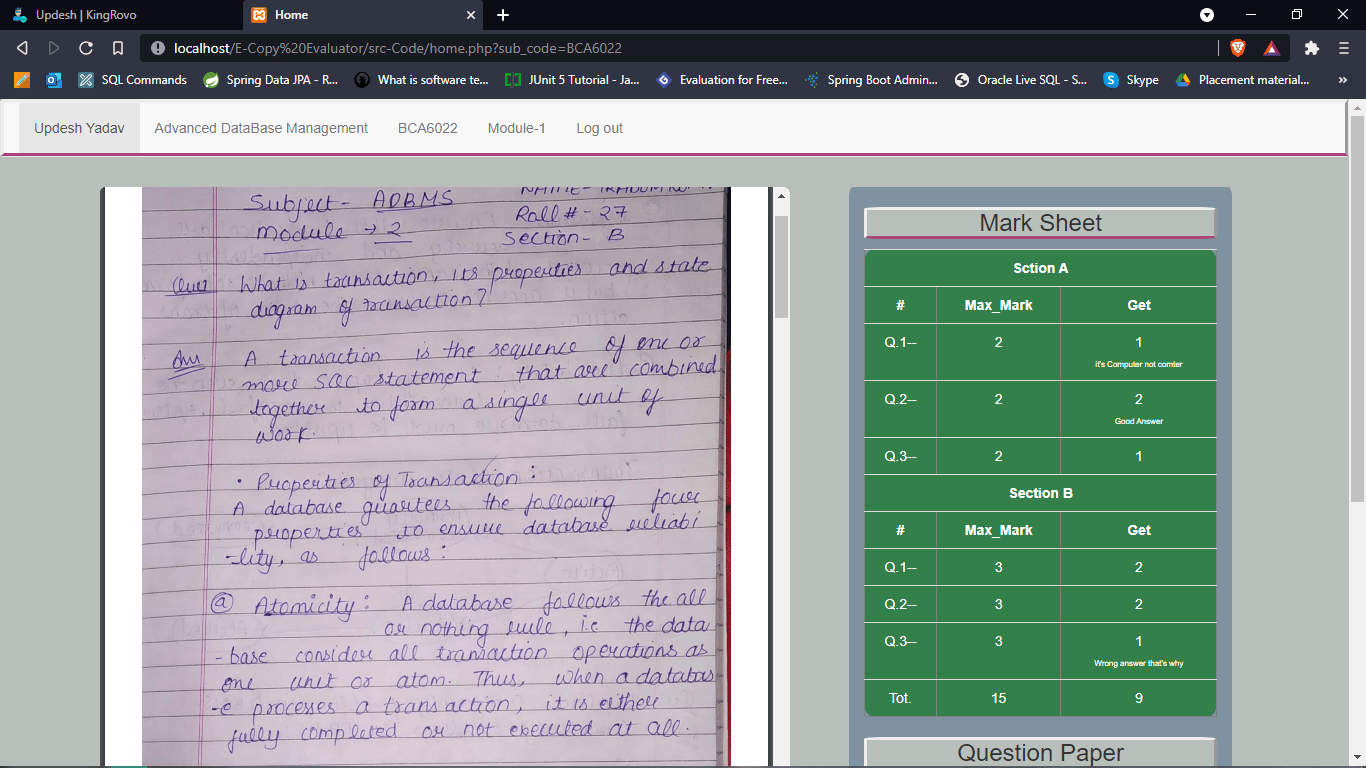 Updesh | KingRovo
Home
localhost/E-Copy%20Evaluator/src-Code/home.php?sub_code=BCA6022
SQL Commands
Spring Data JPA - R...
What is software te...
JUnit 5 Tutorial - Ja...
Evaluation for Free...
Spring Boot Admin...
Oracle Live SQL - S...
Skype
Placement material...
Updesh Yadav
Advanced DataBase Management
BCA6022
Module-1
Log out
Subject - ADBMS
NAME -
Roll # - 27
Module → 2
Section - B
Que1 What is transaction, its properties and state
diagram of transaction?
Ans A transaction is the sequence of one or
more SQL statement that are combined
together to form a single unit of
work.
• Properties of Transaction :
A database guartees the following four
properties to ensure database reliabi
-lity, as follows :
(a) Atomicity : A database follows the all
or nothing rule, i.e the data
-base consider all transaction operations as
one unit or atom. Thus, when a databas
-e processes a transaction, it is either
fully completed or not executed at all.
Mark Sheet
Sction A
# Max_Mark Get
Q.1-- 2 1
it's Computer not comter
Q.2-- 2 2
Good Answer
Q.3-- 2 1
Section B
# Max_Mark Get
Q.1-- 3 2
Q.2-- 3 2
Q.3-- 3 1
Wrong answer that's why
Tot. 15 9
Question Paper